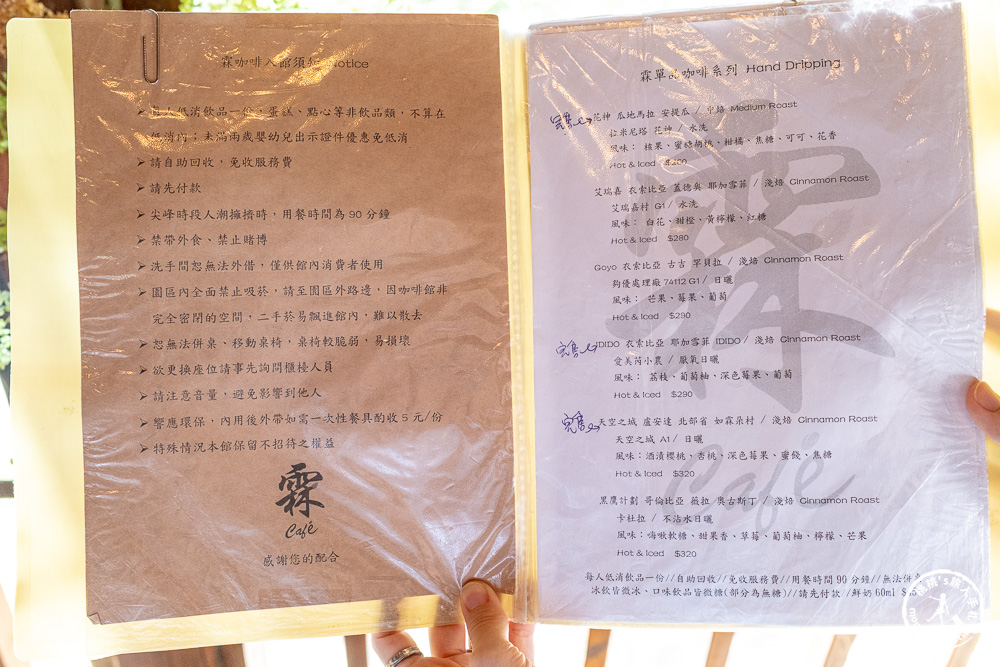 霖咖啡入館須知 Notice
➢ 每人低消飲品一份，蛋糕、點心等非飲品類，不算在
低消內；未滿兩歲嬰幼兒出示證件優惠免低消
➢ 請自助回收，免收服務費
➢ 請先付款
➢ 尖峰時段人潮擁擠時，用餐時間為 90 分鐘
➢ 禁帶外食、禁止賭博
➢ 洗手間恕無法外借，僅供館內消費者使用
➢ 園區內全面禁止吸菸，請至園區外路邊，因咖啡館非
完全密閉的空間，二手菸易飄進館內，難以散去
➢ 恕無法併桌、移動桌椅，桌椅較脆弱，易損壞
➢ 欲更換座位請事先詢問櫃檯人員
➢ 請注意音量，避免影響到他人
➢ 響應環保，內用後外帶如需一次性餐具酌收 5 元/份
➢ 特殊情況本館保留不招待之權益
霖
Café
感謝您的配合
霖單品咖啡系列 Hand Dripping
完售 花神 瓜地馬拉 安提瓜 / 中焙 Medium Roast
拉米尼塔 花神 / 水洗
風味： 核果、蜜糖胡桃、柑橘、焦糖、可可、花香
Hot & Iced $200
艾瑞嘉 衣索比亞 蓋德奧 耶加雪菲 / 淺焙 Cinnamon Roast
艾瑞嘉村 G1 / 水洗
風味： 白花、甜橙、黃檸檬、紅糖
Hot & Iced $280
Goyo 衣索比亞 古吉 罕貝拉 / 淺焙 Cinnamon Roast
夠優處理廠 74112 G1 / 日曬
風味： 芒果、莓果、葡萄
Hot & Iced $290
完售 IDIDO 衣索比亞 耶加雪菲 IDIDO / 淺焙 Cinnamon Roast
愛美芮小農 / 厭氧日曬
風味： 荔枝、葡萄柚、深色莓果、葡萄
Hot & Iced $290
完售 天空之城 盧安達 北部省 如霖朵村 / 淺焙 Cinnamon Roast
天空之城 A1 / 日曬
風味：酒漬櫻桃、杏桃、深色莓果、蜜餞、焦糖
Hot & Iced $320
黑鷹計劃 哥倫比亞 薇拉 奧古斯丁 / 淺焙 Cinnamon Roast
卡杜拉 / 不沾水日曬
風味：嗨啾軟糖、甜果香、草莓、葡萄柚、檸檬、芒果
Hot & Iced $320
霖
Café
每人低消飲品一份//自助回收//免收服務費//用餐時間 90 分鐘//無法併
冰飲皆微冰、口味飲品皆微糖(部分為無糖)//請先付款 //鮮奶 60ml